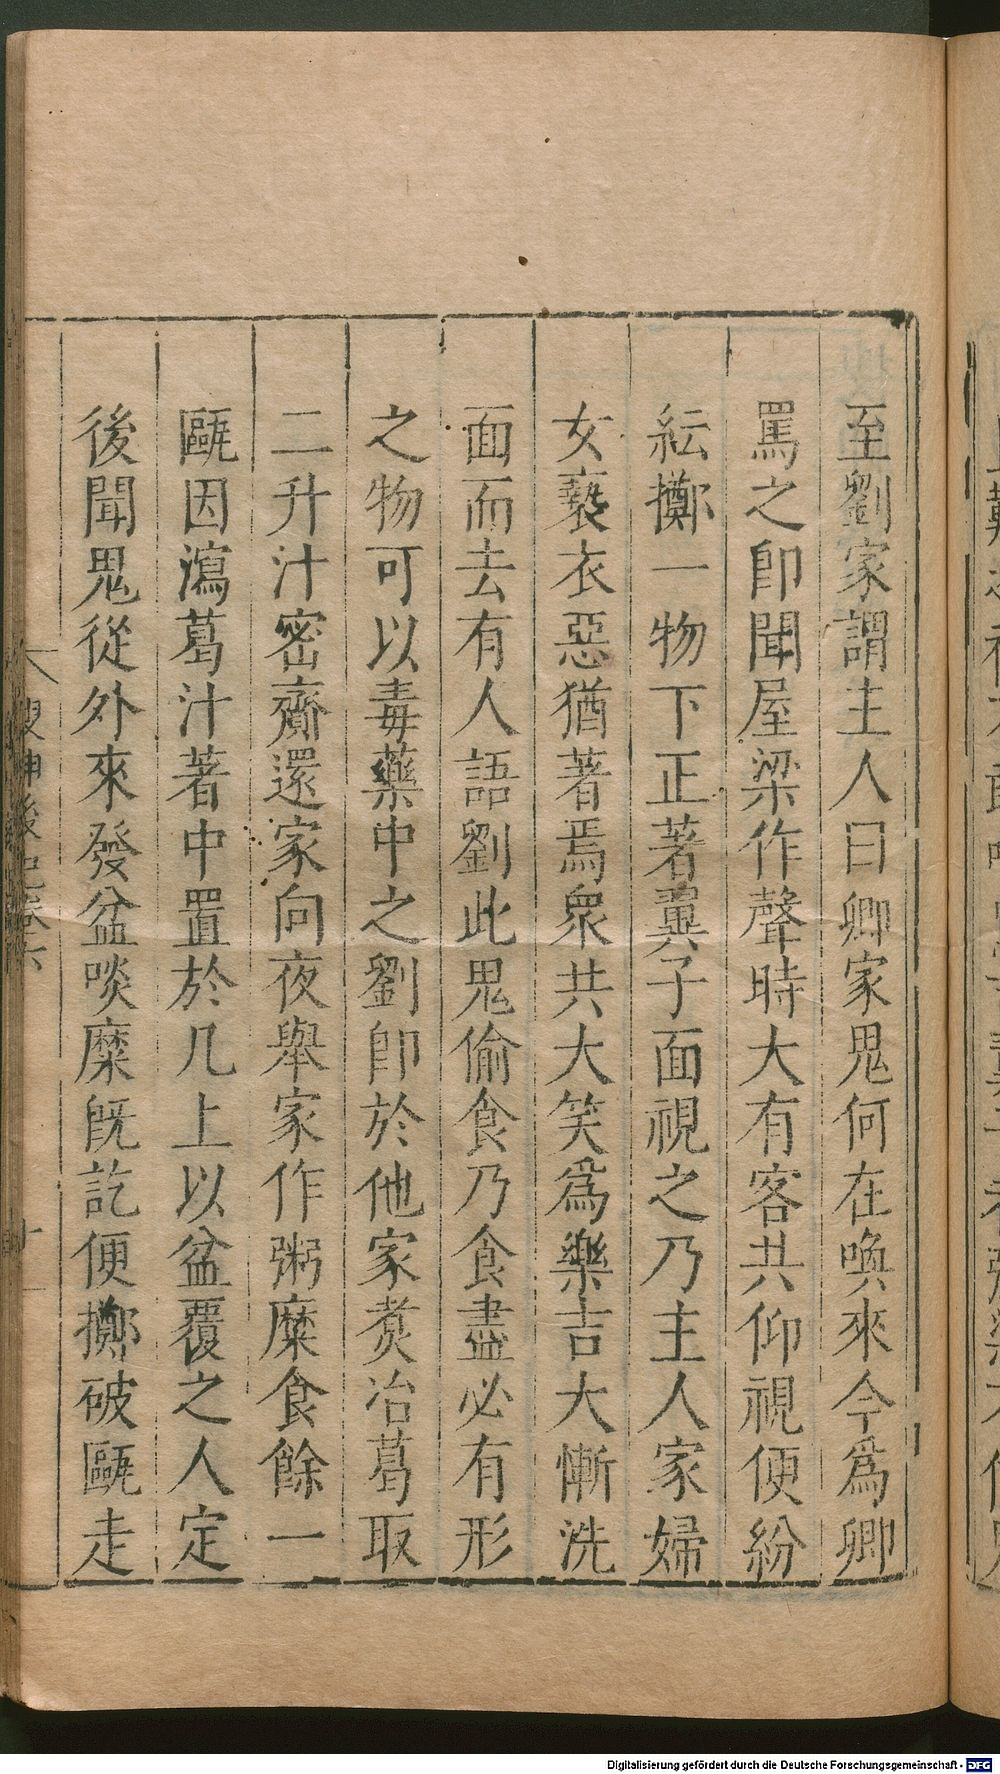 至劉家謂主人曰卿家鬼何在喚來今爲卿
罵之卽聞屋梁作聲時大有客共仰視便紛
紜擲一物下正著翼子面視之乃主人家婦
女褻衣惡猶著焉衆共大笑爲樂吉大慚洗
面而去有人語劉此鬼偷食乃食盡必有形
之物可以毒藥中之劉卽於他家煑冶葛取
二升汁密齎還家向夜舉家作粥糜食餘一
甌因瀉葛汁著中置於几上以盆覆之人定
後聞鬼從外來發盆啖糜旣訖便擲破甌走
搜神後記卷六
十
Digitalisierung gefördert durch die Deutsche Forschungsgemeinschaft - DFG